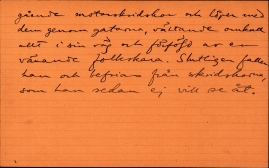 gående motorskridskor och löper med
dem genom gatorna, vältande omkull
allt i sin väg och förföljd av en
växande folkskara. Slutligen faller
han och befrias från skridskorna,
som han sedan ej vill se åt.